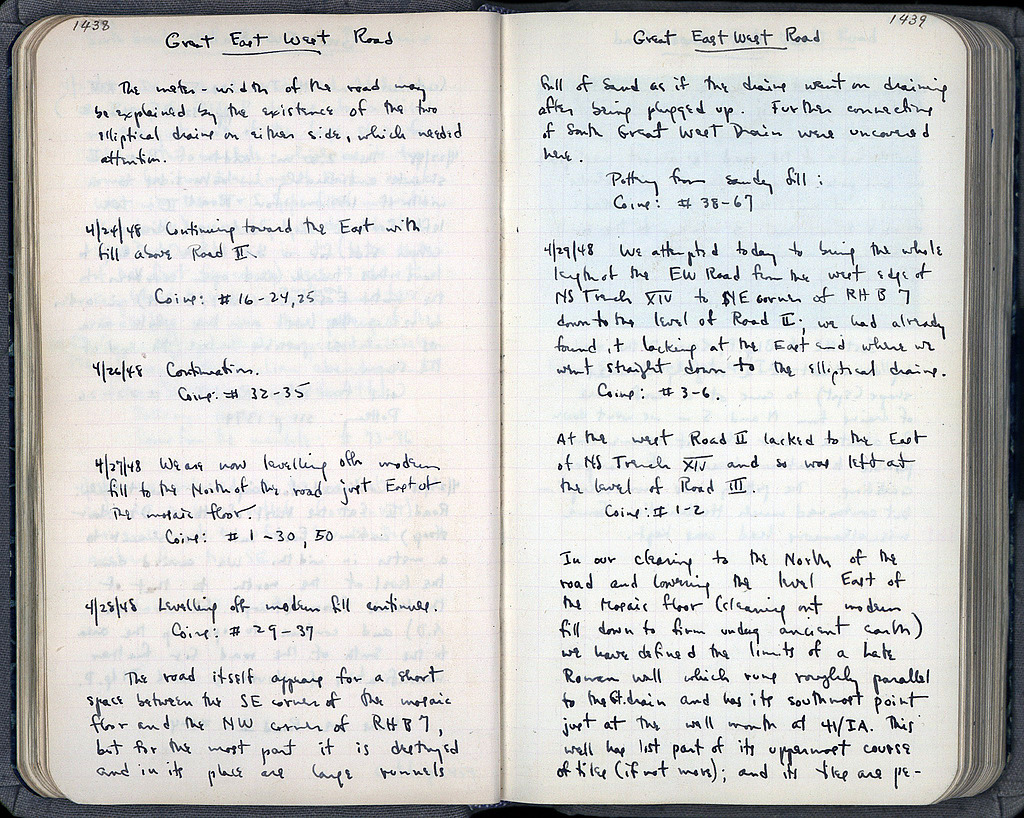 1438
Great East West Road
The meter-width of the road may
be explained by the existence of the two
elliptical drains on either side, which needed
attention.
4/24/48 Continuing toward the East with
fill above Road II.
Coins: # 16-24, 25
4/26/48 Continuation.
Coins: # 32-35
4/27/48 We are now levelling off modern
fill to the North of the road just East of
the mosaic floor.
Coins: # 1-30, 50
4/28/48 Levelling off modern fill continues.
Coins: # 29-37
The road itself appears for a short
space between the SE corner of the mosaic
floor and the NW corner of RHB 7,
but for the most part it is destroyed
and in its place are large runnels
1439
Great East West Road
full of sand as if the drains went on draining
after being plugged up. Further connections
of South Great West Drain were uncovered
here.
Pottery from sandy fill:
Coins: # 38-67
4/29/48 We attempted today to bring the whole
length of the EW Road from the west edge of
NS Trench XIV to NE corner of RHB 7
down to the level of Road II; we had already
found it lacking at the East end where we
went straight down to the elliptical drains.
Coins: # 3-6.
At the west Road II lacked to the East
of NS Trench XIV and so was left at
the level of Road III.
Coins: # 1-2
In our clearing to the North of the
road and lowering the level East of
the Mosaic floor (cleaning out modern
fill down to firm undug ancient earth)
we have defined the limits of a Late
Roman wall which runs roughly parallel
to the Gt. drain and has its southmost point
just at the well mouth at 41/IA. This
well has lost part of its uppermost course
of tiles (if not more); and its tiles are pe-